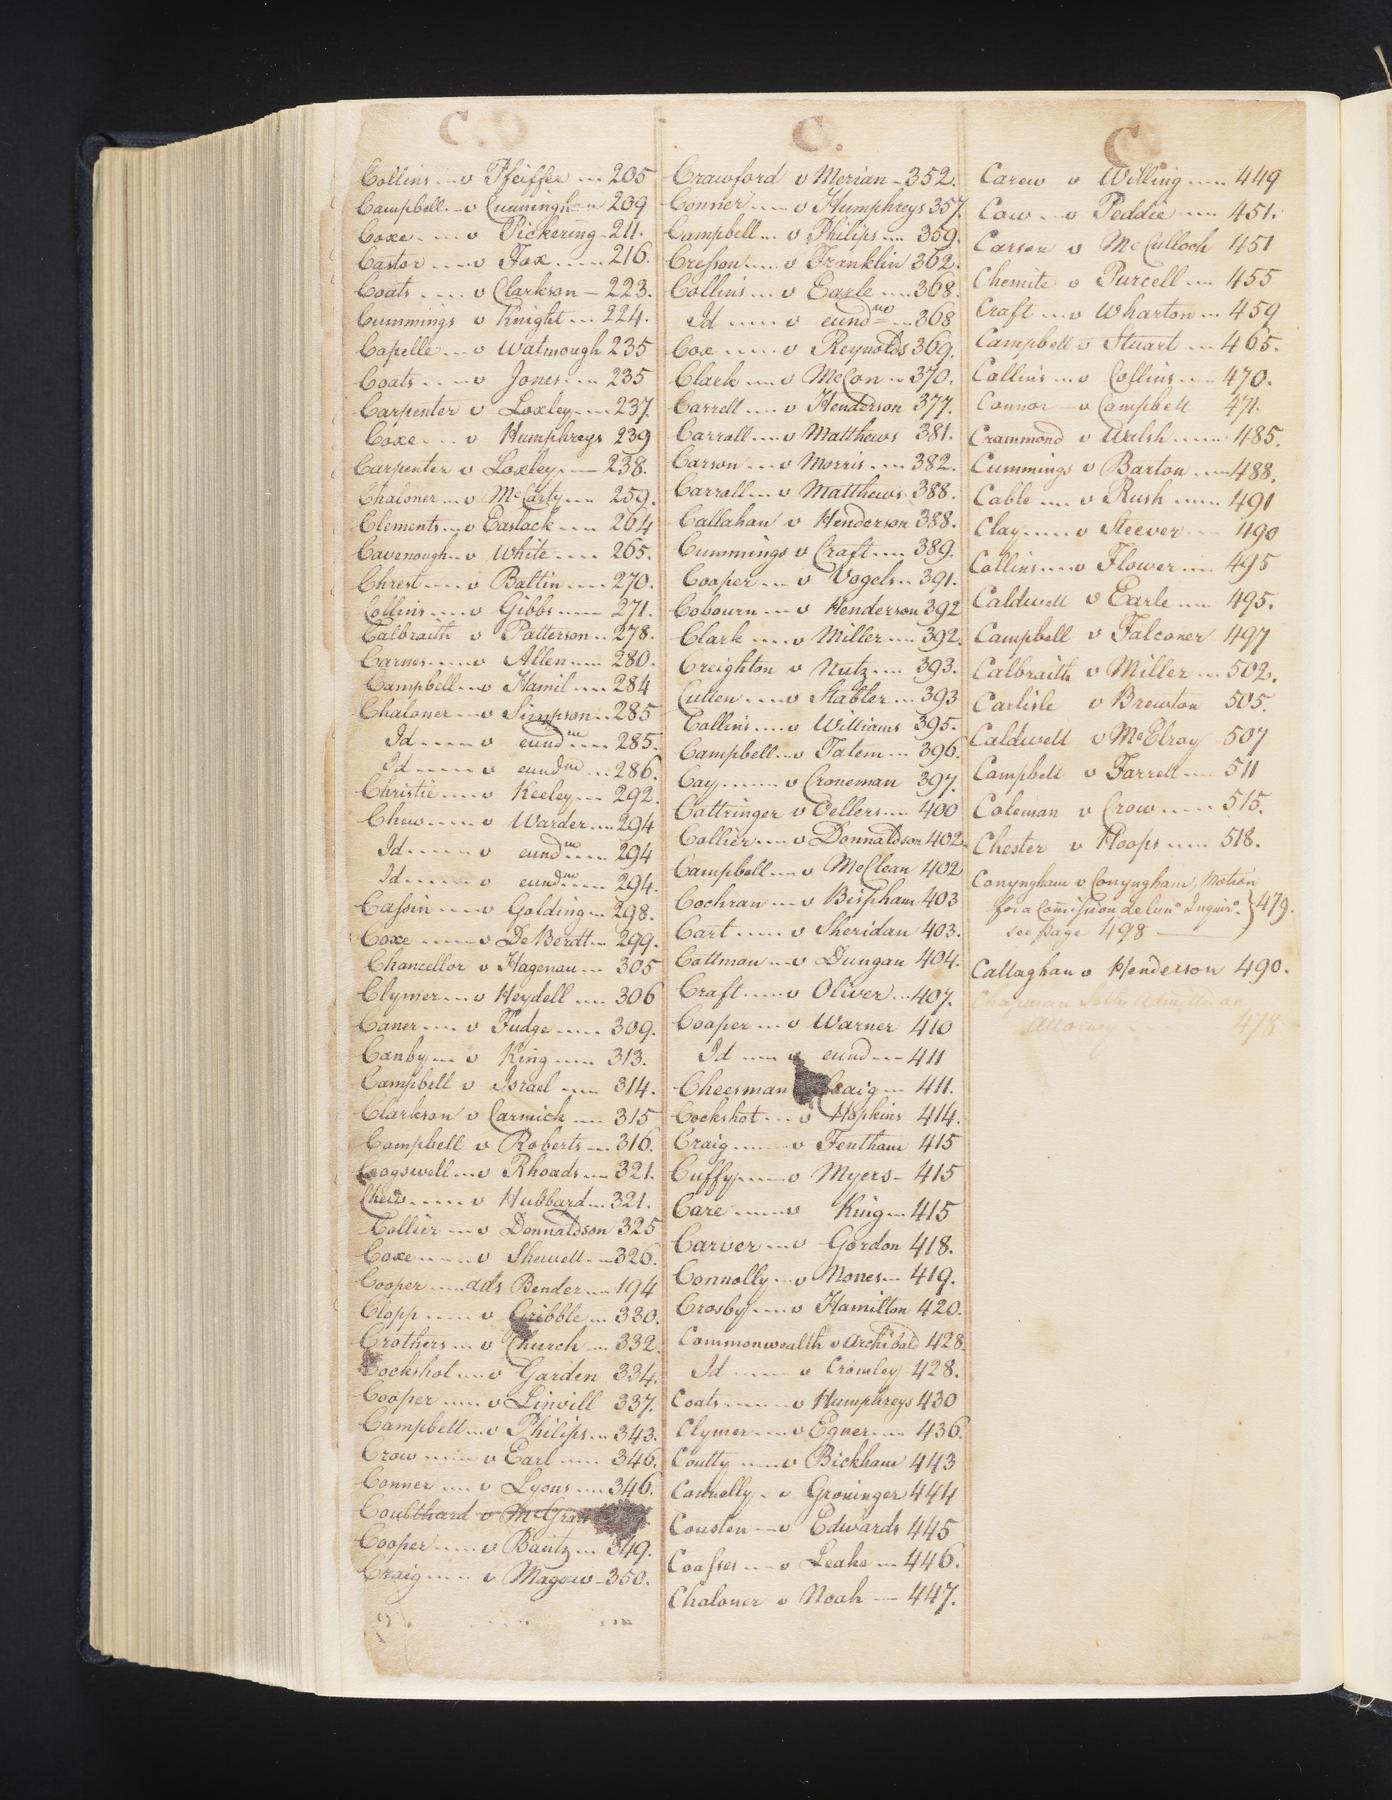 C.
Collins v Pfeiffer 205
Campbell v Cunningham 209
Coxe v Pickering 211.
Castor v Fox 216.
Coats v Clarkson 223.
Cummings v Knight 224.
Capelle v Watmough 235
Coats v Jones 235
Carpenter v Loxley 237.
Coxe v Humphreys 239
Carpenter v Loxley 238.
Chaloner v McCarty 259.
Clements v Eastack 264
Cavenough v White 265.
Chrest v Battin 270.
Collins v Gibbs 271.
Calbraith v Patterson 278.
Carnes v Allen 280.
Campbell v Hamil 284
Chaloner v Simpson 285
Id v eundm 285.
Id v eundm 286.
Christie v Keeley 292.
Chew v Warder 294
Id v eundm 294
Id v eundm 294.
Cassin v Golding 298.
Coxe v DeBerdt 299.
Chancellor v Hagenau 305
Clymer v Heydell 306
Caner v Fudge 309.
Canby v King 313.
Campbell v Israel 314.
Clarkson v Carmick 315
Campbell v Roberts 316.
Cogswell v Rhoads 321.
Chew v Hubbard 321.
Collier v Donnaldson 325
Coxe v Shewell 326.
Cooper ads Bender 194
Clopp v Gribble 330.
Crothers v Church 332.
Cockshot v Garden 334.
Cooper v Linvill 337.
Campbell v Philips 343.
Crow v Earl 346.
Conner v Lyons 346.
Coulthard v
Cooper v Bantz 349.
Craig v Magaw 350.
C.
Crawford v Merian 352.
Conner v Humphreys 357.
Campbell v Philips 359.
Cresson v Franklin 362.
Collins v Earle 368.
Id v eundmo 368
Cox v Reynolds 369.
Clark v McCon 370.
Carrell v Henderson 377.
Carrall v Matthews 381.
Carson v Morris 382.
Carrall v Matthews 388.
Callahan v Henderson 388.
Cummings v Craft 389.
Cooper v Vogels 391.
Cobourn v Henderson 392
Clark v Miller 392.
Creighton v Nutz 393.
Cullen v Stabler 393
Collins v Williams 395.
Campbell v Tatem 396.
Cay v Croneman 397.
Cattringer v Tellers 400
Collier v Donnaldson 402.
Campbell v McClean 402
Cochran v Bispham 403
Cart v Sheridan 403.
Cattman v Dungan 404.
Craft v Oliver 407.
Cooper v Warner 410
Id v eund 411
Cheesman Craig 411.
Cockshot v Hopkins 414.
Craig v Fentham 415
Cuffy v Myers 415
Care v King 415
Carver v Gordon 418.
Connolly v Nones 419.
Crosby v Hamilton 420.
Commonwealth v Archibald 428.
Id v Cromley 428.
Coats v Humphreys 430
Clymer v Egner 436.
Coutty v Bickham 443
Connelly v Groninger 444
Couslen v Edwards 445
Coasses v Leake 446.
Chaloner v Noah 447.
C
Carew v Willing 449
Caw v Peddie 451.
Carson v McCulloch 451
Chemite v Purcell 455
Craft v Wharton 459
Campbell v Stuart 465.
Collins v Collins 470.
Connor v Campbell 471.
Crammond v Walsh 485.
Cummings v Barton 488.
Cable v Rush 491
Clay v Steever 490
Collins v Flower 495
Caldwell v Earle 495.
Campbell v Falconer 497
Calbraith v Miller 502.
Carlisle v Brewton 505.
Caldwell v McElroy 507
Campbell v Farrell 511
Coleman v Crow 515.
Chester v Hoops 518.
Conyngham v Conyngham, Motion
for a Com̃ission de lun° Inquir°. } 479.
see page 498
Callaghan v Henderson 490.
Chapman Seth Admitted an
Attorney 478